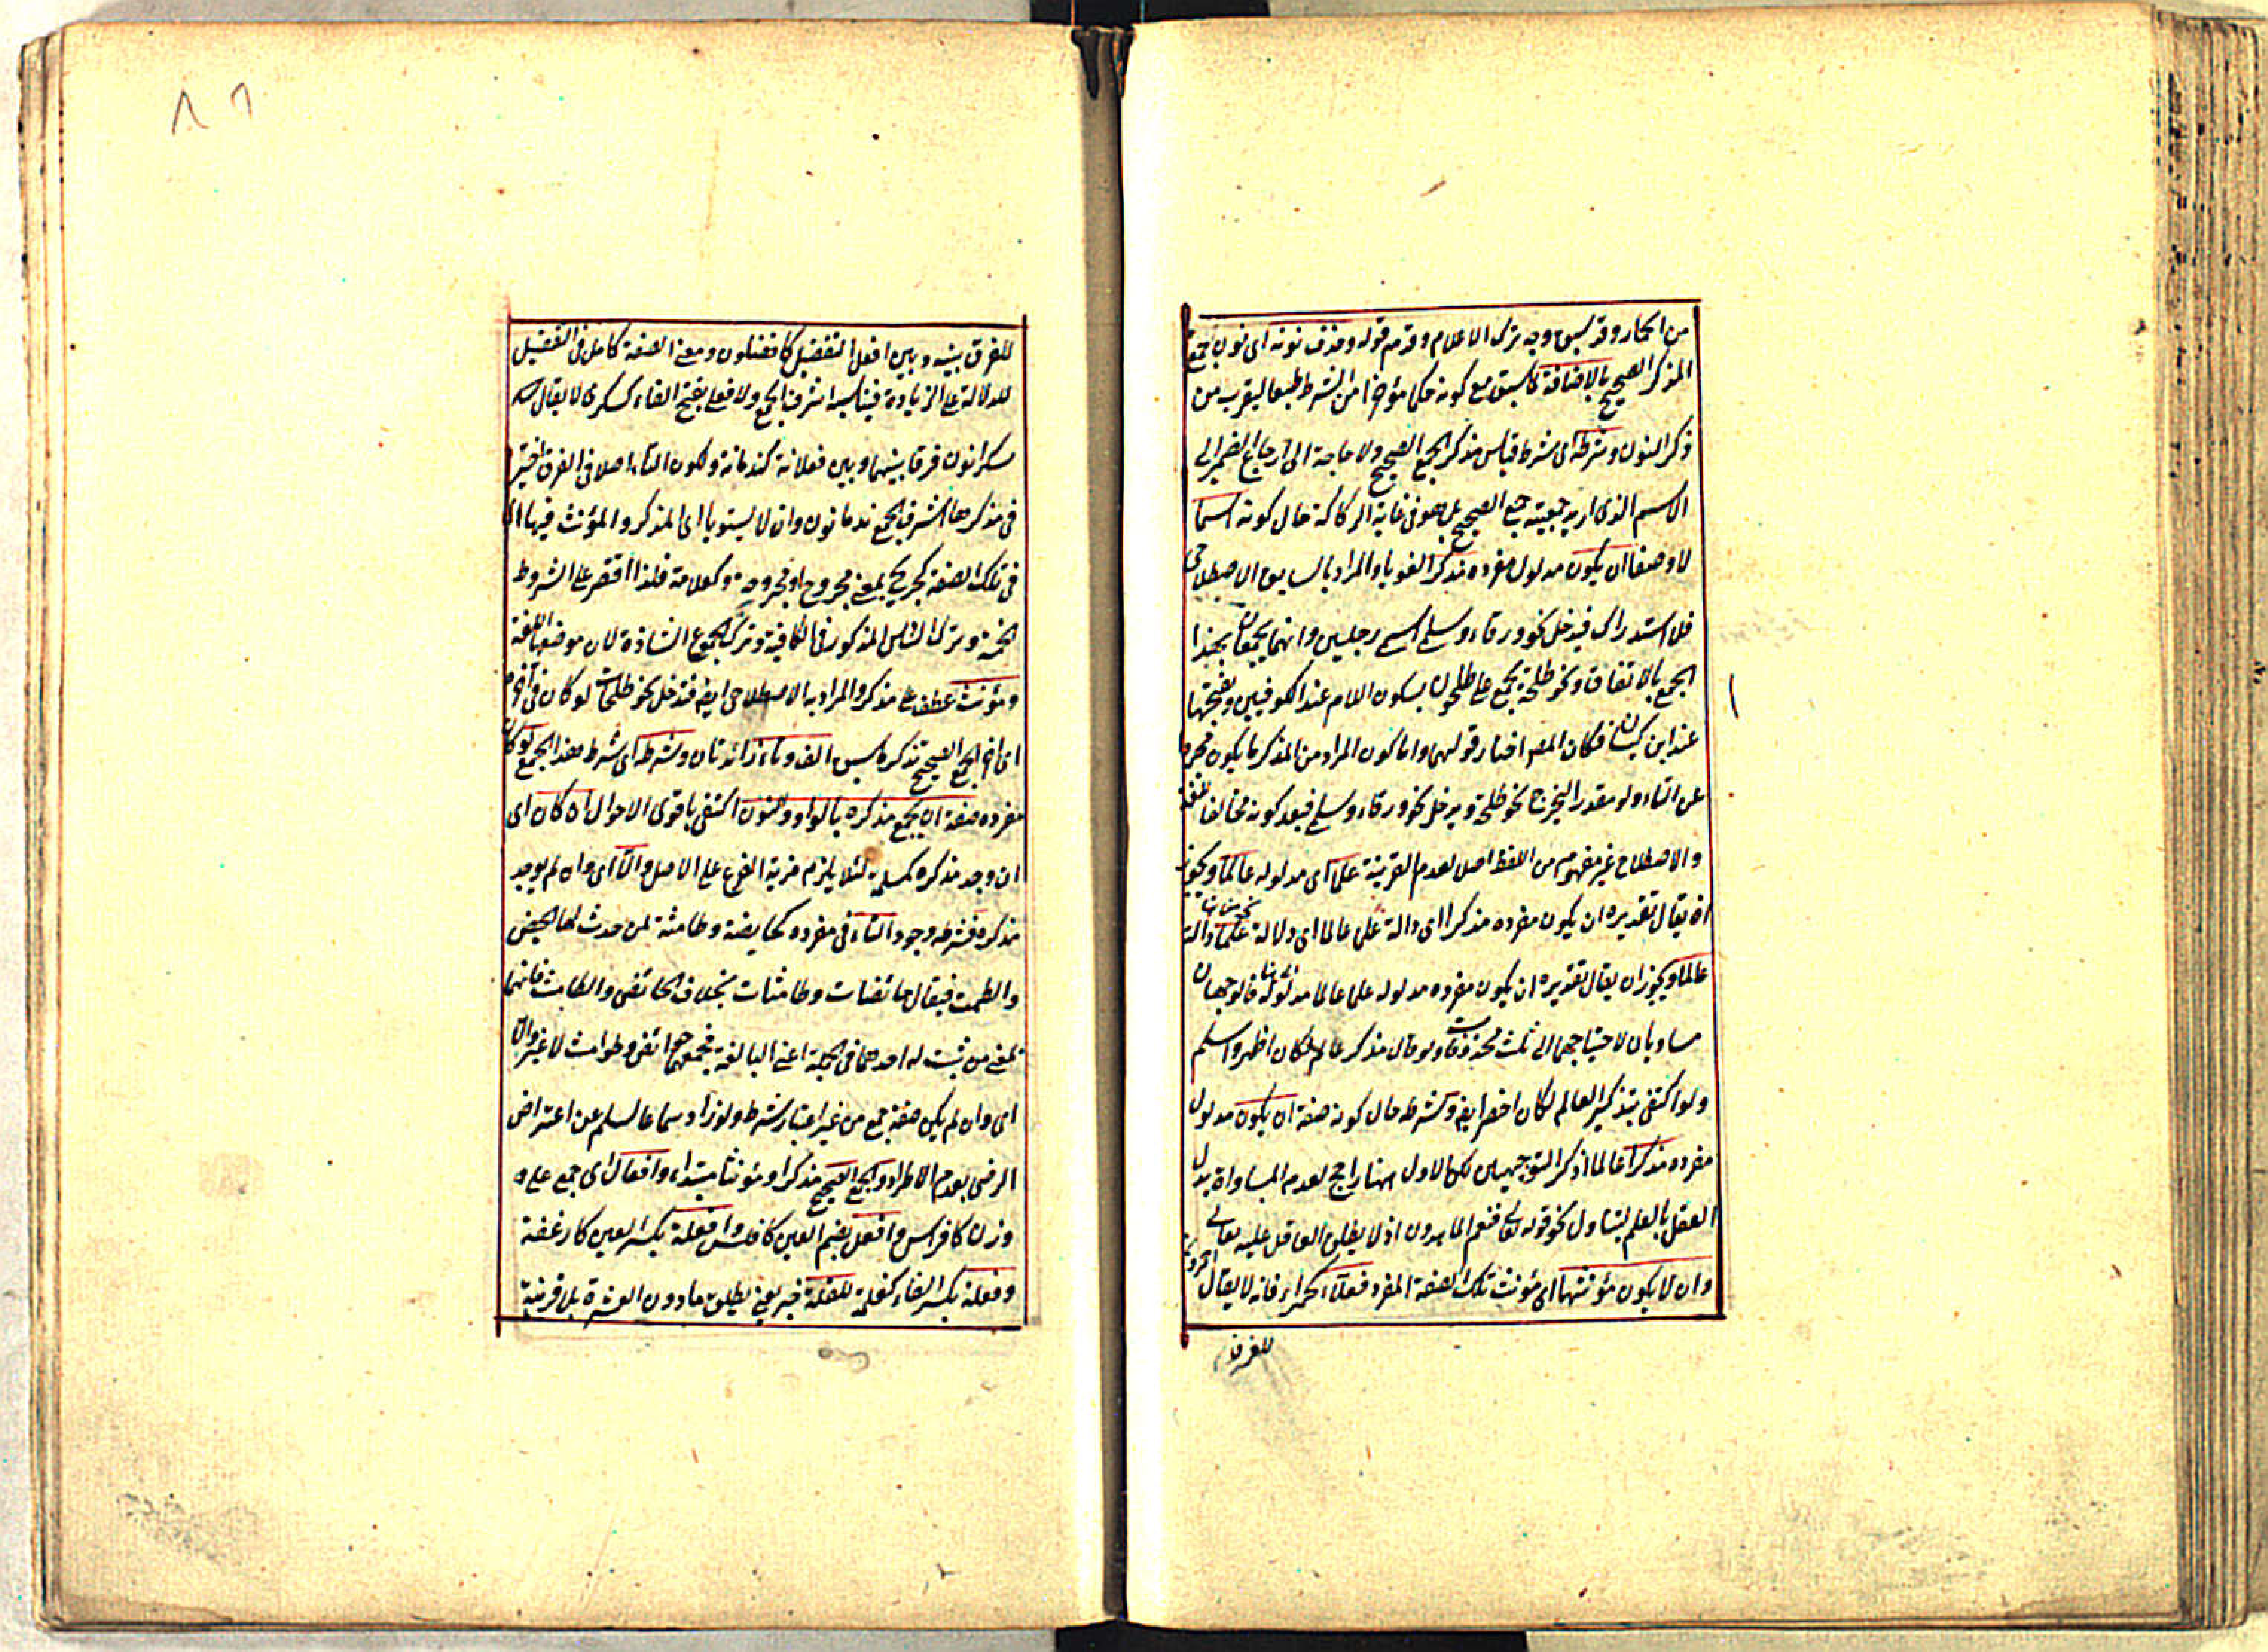 من الحمار وقد سبق وجه ترك الاعلام وقدم قوله وحذف نونه اى نون الجمع
المذكر الصحيح بالاضافة كما سبق مع كونه حكما مؤخرا من الشرط طبعا ليقرب من
ذكر النون وشرطه اى شرط قياس مذكر الجمع الصحيح ولا حاجة الى ارجاع الضمير الى
الاسم الذى اريد جمعيته جمع الصحيح بل هو فى غاية الركاكة حال كونه اسما
لا وصفا ان يكون مدلول مفرده مذكرا لغويا والمراد بالسابق الاصطلاحى
فلا استدراك فيدخل نحو ورقاء وسلمى اسمى رجلين وانهما يجمعان بهذا
الجمع بالاتفاق ونحو طلحة يجمع على طلحون بسكون اللام عند الكوفيين وبفتحها
عند ابن كيسان فكان المص اختار قولهما واما كون المراد من المذكر ما يكون مجردا
عن التاء ولو مقدرا ليخرج نحو طلحة ويدخل نحو ورقاء وسلمى فبعد كونه مخالفا للغة
والاصطلاح غير مفهوم من اللفظ اصلا لعدم القرينة علما اى مدلوله عالما ويجوز
ان يقال تقديره ان يكون مفرده مذكرا اى دالة علما عالما اى دلالة علما دالة
عالما ويجوز ان يقال تقديره ان يكون مفرده مدلوله علما عالما مدلوله فالوجهان
مساويان لاحتياجهما الى ثلث محذوفات ولو قال مذكر عالم لكان اظهر واسلم
ولو اكتفى بتذكير العالم لكان اخصر ايضا وشرطه حال كونه صفة ان يكون مدلول
مفرده مذكرا عالما اذكر التوجيهين لكن الاول هنا راجح لعدم المساواة بدل
العقل بالعلم ليتناول نحو قوله تعالى فنعم الماهدون اذ لا يطلق العاقل عليه تعالى
وان لا يكون مؤنثها اى مؤنث تلك الصفة المفرد فعلاء كحمراء فانه لا يقال
للفرق
للفرق بينه وبين افعل التفضيل كافضلون ومعنى الصفة كامل فى التفضيل
للدلالة على الزيادة فيناسبه اشرف الجمع ولا فعلى بفتح الفاء كسكرى لا يقال
سكرانون فرقا بينهما وبين فعلانة كندمانة ولكون التاء اصلا فى الفرق اختير
فى مذكرها اشرف الجمع ندمانون وان لا يستويا اى المذكر والمؤنث فيها اى
فى تلك الصفة كجريح بمعنى مجروح او مجروحة وكعلامة فلذا اقتصر على الشروط
الخمسة وترك السادس المذكور فى الكافية وترك الجموع الشاذة لان موضعها اللغة
ومؤنث عطف على مذكر والمراد به الاصطلاحى ايضا فتدخل نحو طلحات لو كان فى آخره
اى آخر الجمع الصحيح تذكره الف وتاء زائدتان وشرطه اى شرط هذا الجمع لو كان
مفرده صفة ان يجمع مذكره بالواو والنون اكتفى باقوى الاحوال ان كان اى
ان وجد مذكره كمسلم لئلا يلزم مزية الفرع على الاصل والا اى وان لم يوجد
مذكره فشرطه وجود التاء فى مفرده كحايضة وطامثة لمن حدث لها الحيض
والطمث فيقال حائضات وطامثات بخلاف الحائض والطامث فانهما
بمعنى من ثبت له احدهما فى الجملة اعنى البالغة فجمعهما حوائض وطوامث لا غير والا
اى وان لم يكن صفة جمع من غير اعتبار شرط ولو زاد سماعا لسلم عن اعتراض
الرضى بعدم الاطراد والجمع الصحيح مذكرا ومؤنثا مبتداء وافعال اى جمع على
وزن كافراس وافعل بضم العين كافلس وافعلة بكسر العين كارغفة
وفعلة بكسر الفاء كغلمة للقلة خبر يعنى يطلق ما دون العشرة بلا قرينة